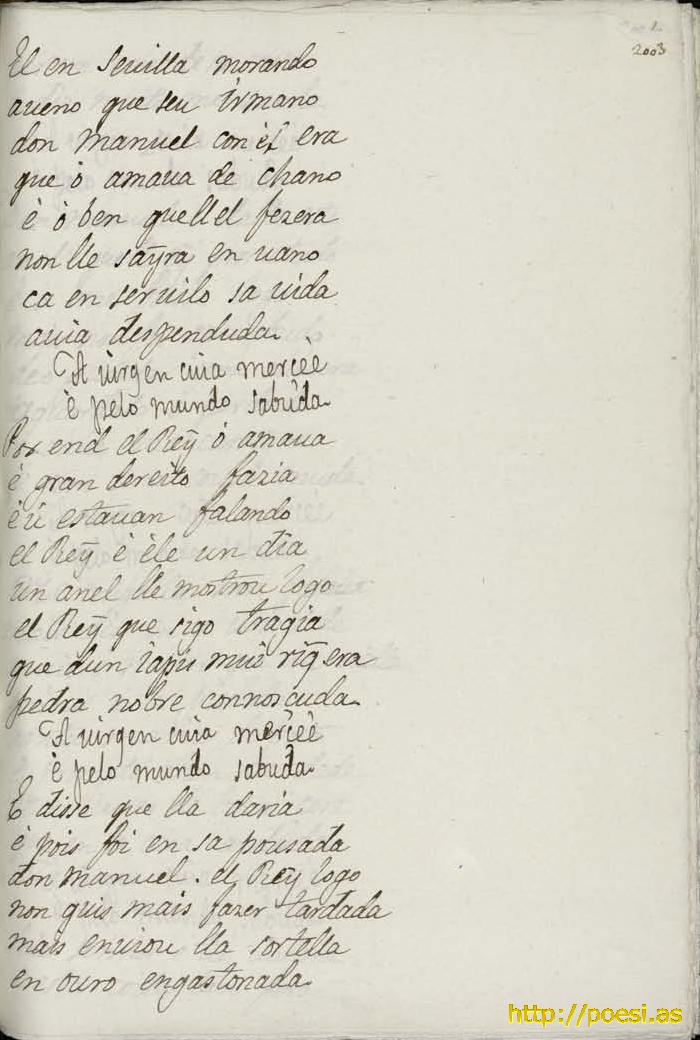 2003
El en Seuilla morando
aueno que seu irmano
don Manuel con él era
que ò amaua de chano
è ò ben quellel fezera
non lle saýra en uano
ca en seruilo sa uida
auia despenduda.
A uirgen cuia merçèè
è pelo mundo sabuda.
Por end el Reÿ ò amaua
è gran dereito fazia
è ù estauan falando
el Reÿ è èle un dia
un anel lle mostrou logo
el Reÿ que sigo tragia
que dun iapis mui riq̃ era
pedra nobre connosçuda.
A uirgen cuia merçèè
è pelo mundo sabuda.
E disse que lla daria
è pois foi en sa pousada
don Manuel. el Rey logo
non quis mais fazer tardada
mais enuiou lla sortella
en ouro engastonada.
http://poesi.as